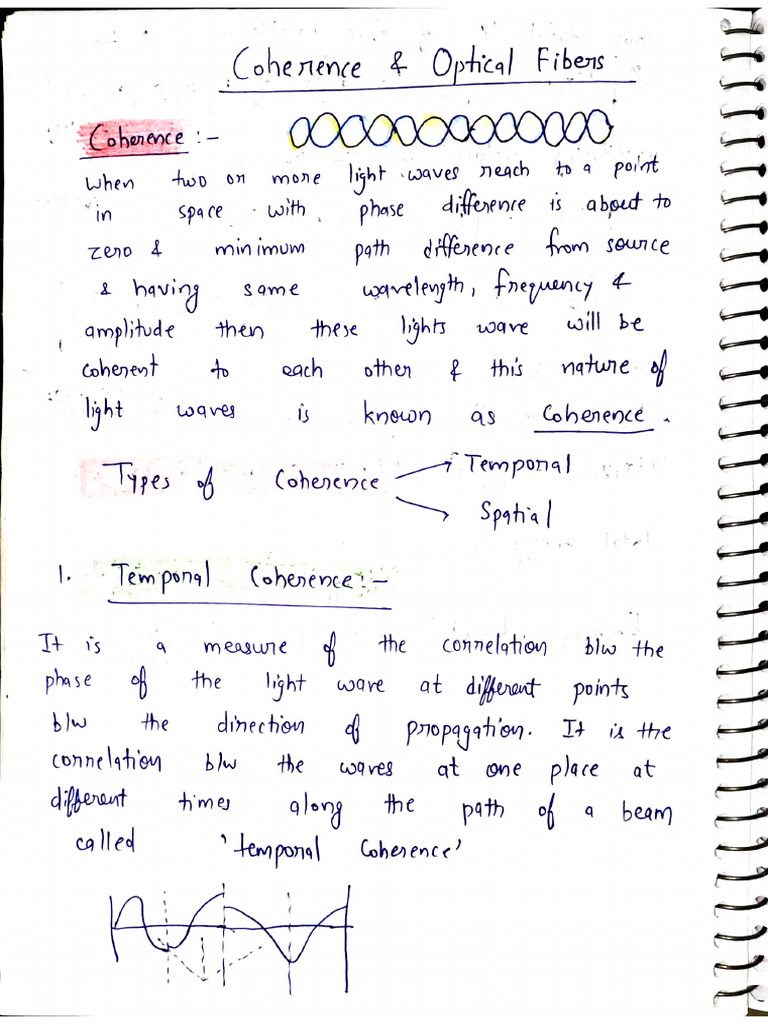 Coherence & Optical Fibers
Coherence :-
When two or more light waves reach to a point
in space with phase difference is about to
zero & minimum path difference from source
& having same wavelength, frequency &
amplitude then these lights wave will be
coherent to each other & this nature of
light waves is known as Coherence.
Types of Coherence
Temporal
Spatial
1. Temporal Coherence:-
It is a measure of the correlation b/w the
phase of the light wave at different points
b/w the direction of propagation. It is the
correlation b/w the waves at one place at
different times along the path of a beam
called 'temporal Coherence'